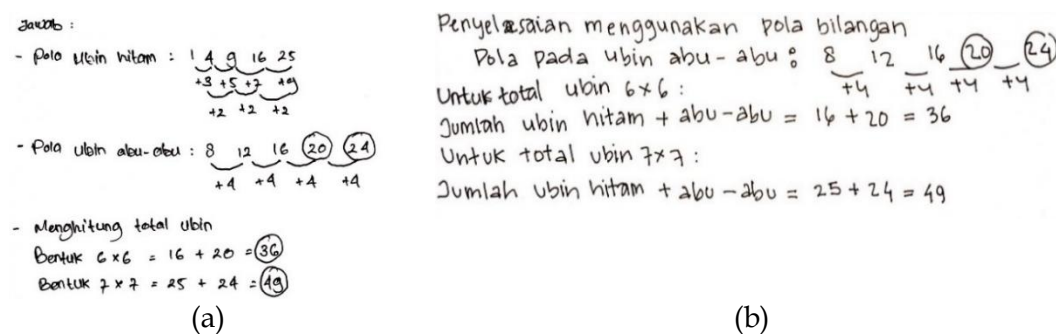 Jawab :
- Pola Ubin hitam : 1 4 9 16 25
+3 +5 +7 +9
+2 +2 +2
- Pola ubin abu-abu : 8 12 16 20 24
+4 +4 +4 +4
- Menghitung total ubin
Bentuk 6 x 6 = 16 + 20 = 36
Bentuk 7 x 7 = 25 + 24 = 49
(a)
Penyelesaian menggunakan pola bilangan
Pola pada ubin abu-abu : 8 12 16 20 24
+4 +4 +4 +4
Untuk total ubin 6x6 :
Jumlah ubin hitam + abu-abu = 16 + 20 = 36
Untuk total ubin 7x7 :
Jumlah ubin hitam + abu-abu = 25 + 24 = 49
(b)